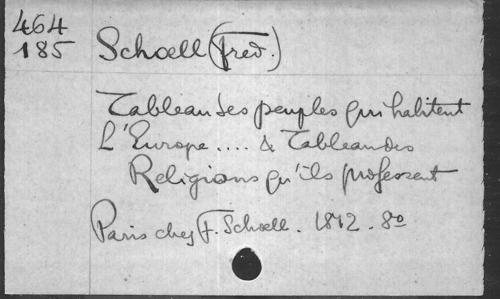 464
185
Schoell (Fred.)
Tableau des peuples qui habitent
L'Europe .... & Tableau des
Religions qu'ils professent
Paris chez F. Schoell. 1812. 8o